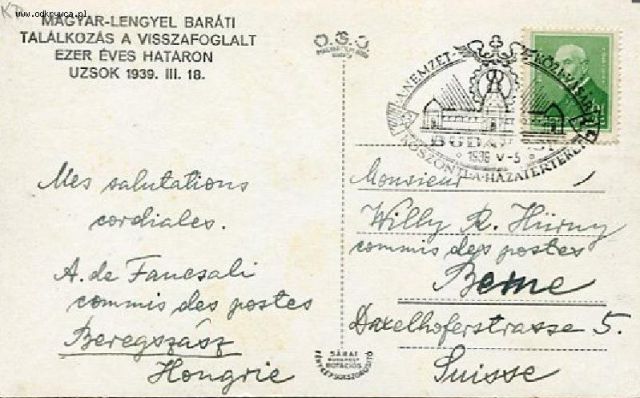 www.odkrywca.pl
MAGYAR-LENGYEL BARÁTI
TALÁLKOZÁS A VISSZAFOGLALT
EZER ÉVES HATÁRON
UZSOK 1939. III. 18.
O.S.J.
A NEMZET
KÖZVIZSGÁLAT
BUDAPEST
KÖSZÖNTI A HAZATÉRTEKET
Mes salutations
cordiales.
A. de Fancsali
commis des postes
Beregszász
Hongrie
Monsieur
Willy R. Hürny
commis des postes
Berne
Daxelhoferstrasse 5.
Suisse
SÁRAI
BUDAPEST
ROTÁCIÓS
FÉNYKÉPSOKSZOROSÍTÓ